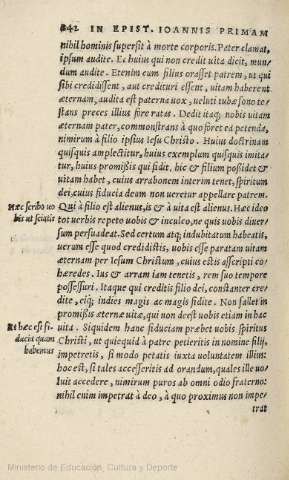 242 IN EPIST. IOANNIS PRIMAM
nihil hominis supersit à morte corporis. Pater clamat,
ipsum audite. Ex huius qui non credit uita dicit, mun-
dum audite. Etenim cum filius orasset patrem, ut qui
sibi credidissent, aut credituri essent, uitam haberent
æternam, audita est paterna uox, ueluti tubæ sono te-
stans preces illius fore ratas. Dedit itaq; nobis uitam
æternam pater, commonstrans à quo foret ea petenda,
nimirum à filio ipsius Iesu Christo. Huius doctrinam
quisquis amplectitur, huius exemplum quisquis imita-
tur, huius promissis qui fidit, hic & filium possidet &
uitam habet, cuius arrabonem interim tenet, spiritum
dei, cuius fiducia deum non ueretur appellare patrem.
Hæc scribo uo
bis ut sciatis
Qui à filio est alienus, is & à uita est alienus. Hæc ideo
tot uerbis repeto uobis & inculco, ne quis uobis diuer-
sum persuadeat. Sed certum atq; indubitatum habeatis,
uerum esse quod credidistis, uobis esse paratam uitam
æternam per Iesum Christum, cuius estis asscripti co-
hæredes. Ius & arram iam tenetis, rem suo tempore
possessuri. Itaque qui creditis filio dei, constanter cre-
dite, eiq; indies magis ac magis fidite. Non fallet in
promissis æternæ uitæ, qui non deest uobis etiam in hac
Et hæc est fi-
ducia quam
habemus
uita. Siquidem hanc fiduciam præbet uobis spiritus
Christi, ut quicquid à patre petieritis in nomine filij,
impetretis, si modo petatis iuxta uoluntatem illius:
hoc est, si tales accesseritis ad orandum, quales ille uo-
luit accedere, nimirum puros ab omni odio fraterno:
nihil enim impetrat à deo, à quo proximus non impe-
trat
Ministerio de Educación, Cultura y Deporte